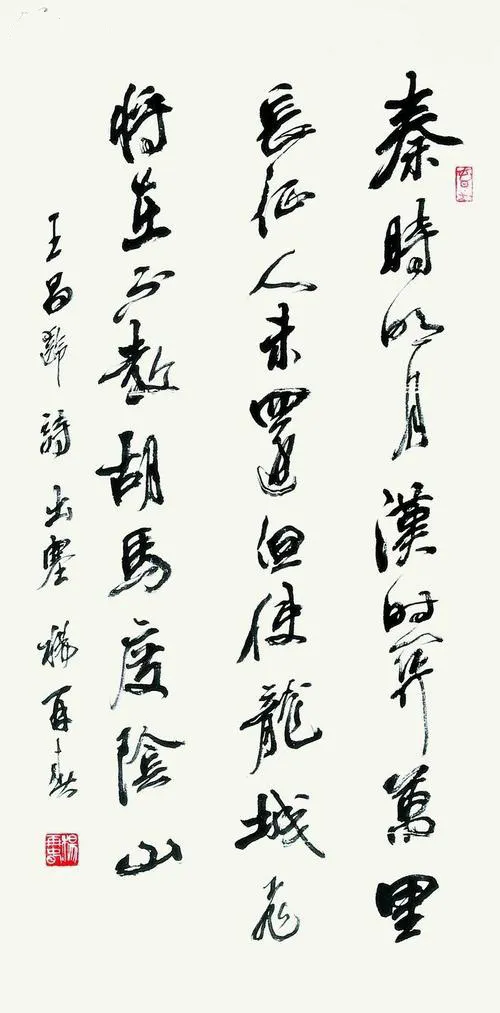 秦時明月漢时關萬里
長征人未還但使龍城飛
將在不教胡馬度陰山
王昌齡詩出塞 楊再春